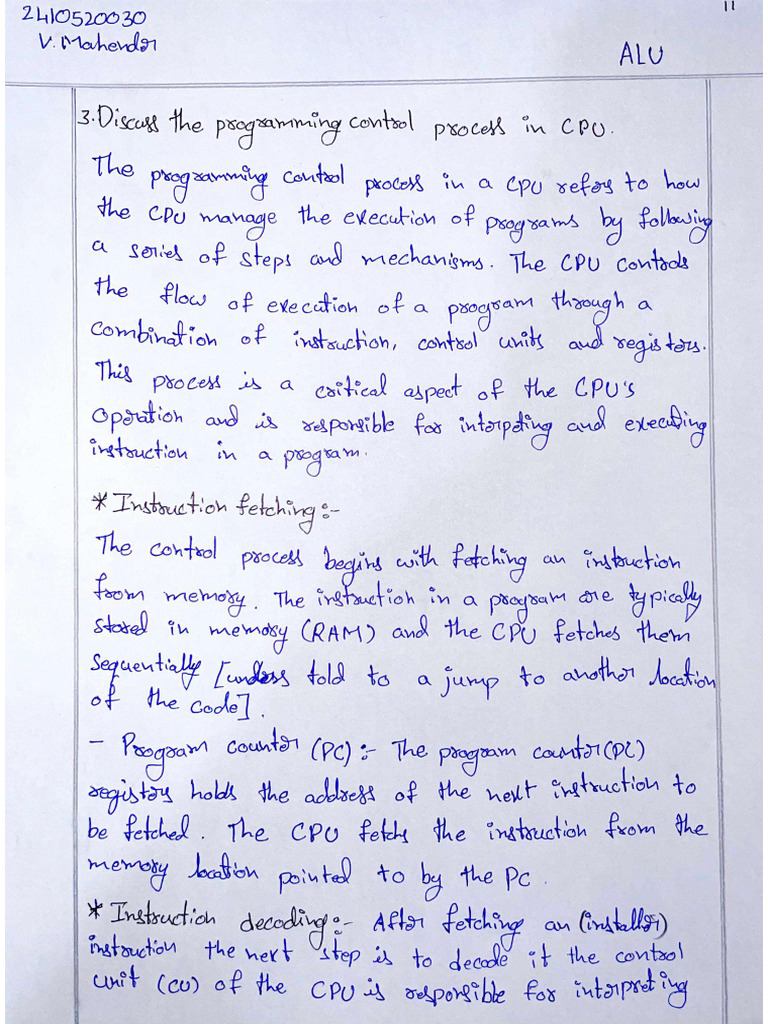 2410520030
11
V. Mahendar
ALU
3. Discuss the programming control process in CPU.
The programming control process in a CPU refers to how
the CPU manage the execution of programs by following
a series of steps and mechanisms. The CPU controls
the flow of execution of a program through a
combination of instruction, control units and registers.
This process is a critical aspect of the CPU's
Operation and is responsible for interpeting and executing
instruction in a program.
* Instruction fetching :-
The control process begins with fetching an instruction
from memory. The instruction in a program are typically
stored in memory (RAM) and the CPU fetches them
Sequentially [unless told to a jump to another location
of the code].
- Program counter (PC) :- The program counter (PC)
registers holds the address of the next instruction to
be fetched. The CPU fetchs the instruction from the
memory location pointed to by the PC.
* Instruction decoding :- After fetching an (installer)
instruction the next step is to decode it the control
unit (CU) of the CPU is responsible for interpreting